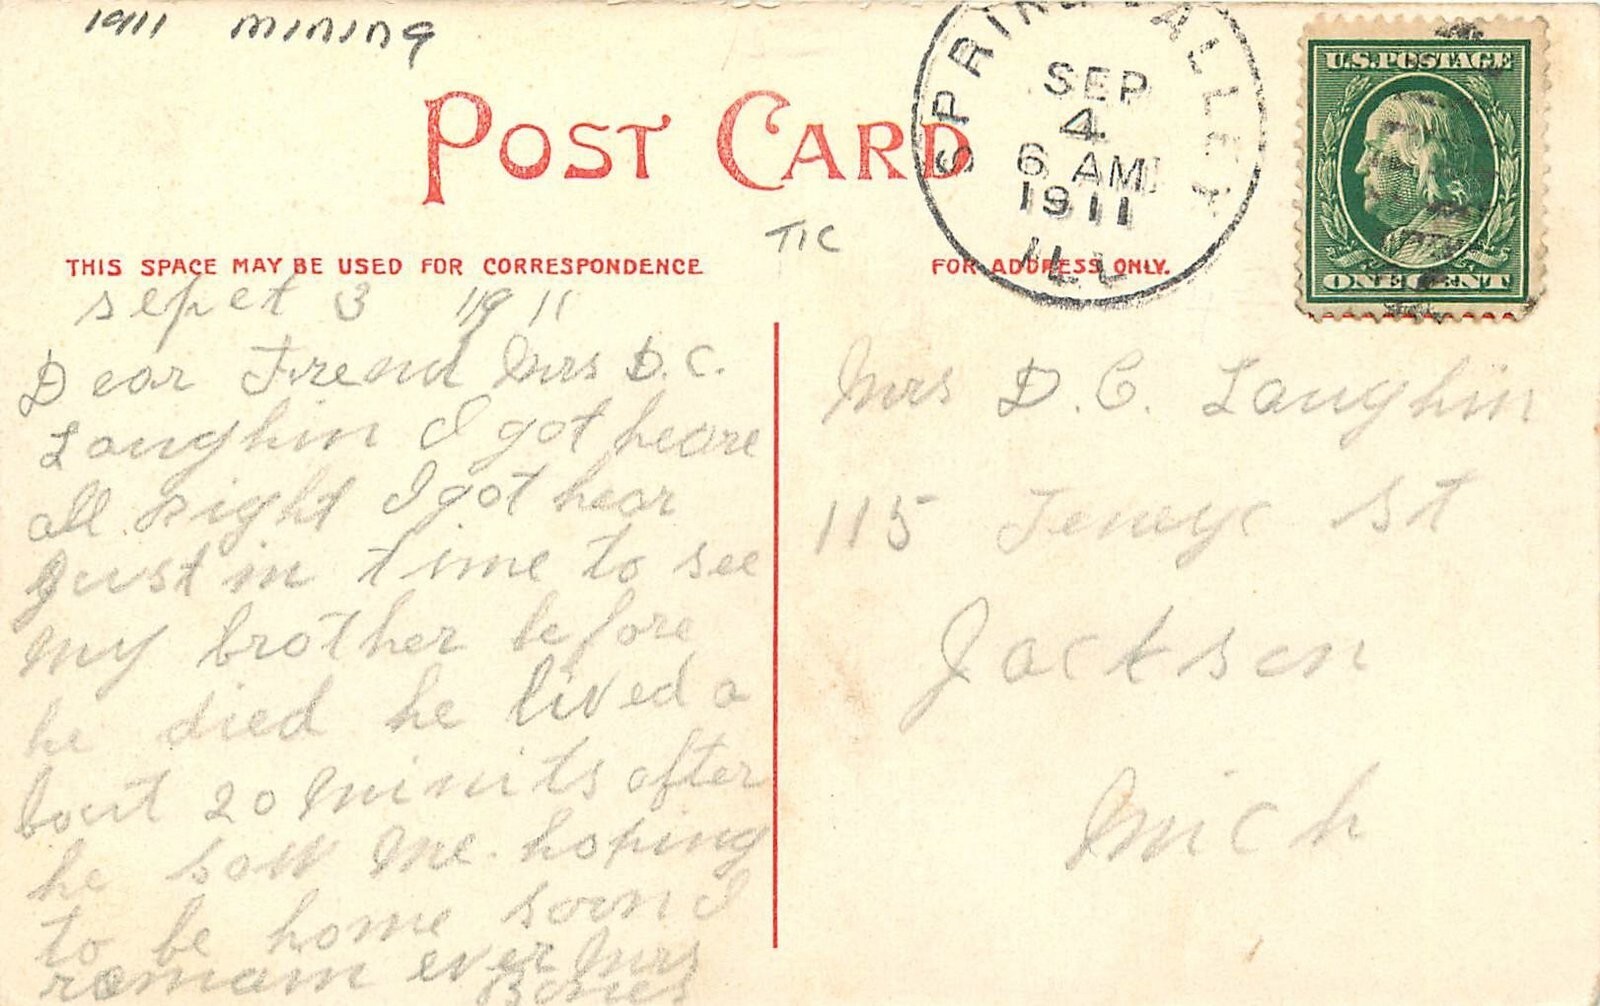 1911 mining
POST CARD
SPRING VALLEY
SEP
4
6 AM
1911
ILL
U.S.POSTAGE
ONE CENT
TIC
THIS SPACE MAY BE USED FOR CORRESPONDENCE
FOR ADDRESS ONLY.
sepet 3 1911
Dear Frend Mrs D.C.
Laughin I got heare
all right I got hear
Just in time to see
my brother before
he died he lived a
bout 20 minits after
he saw me hoping
to be home soon I
remain ever Mrs
Mrs D. C. Laughin
115 St
Jackson
Mich